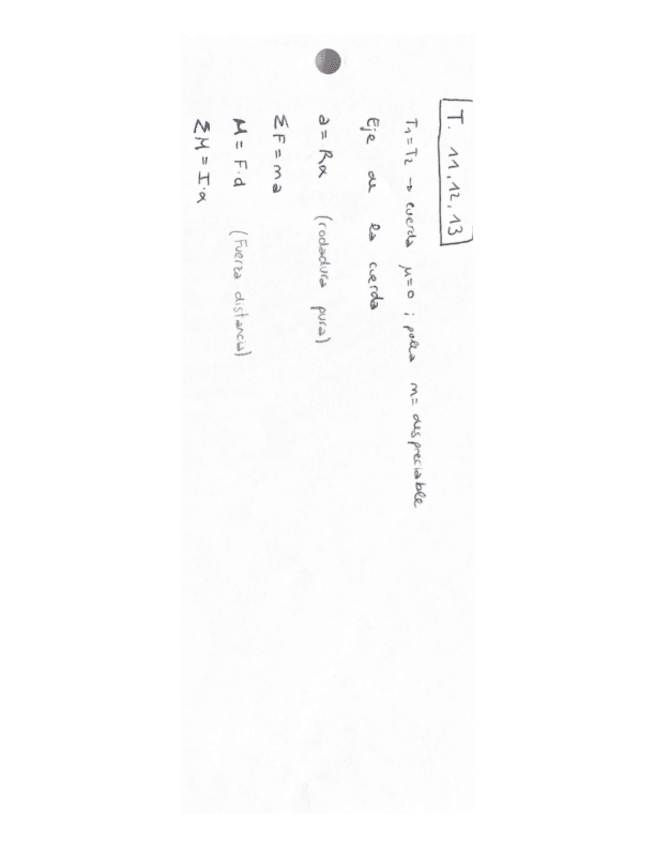 T. 11, 12, 13
T₁ = T₂ → cuerda μ=0 ; polea m= despreciable
Eje de la cuerda
a = Rα (rodadura pura)
ΣF = ma
M = F·d (Fuerza distancia)
ΣM = I·α